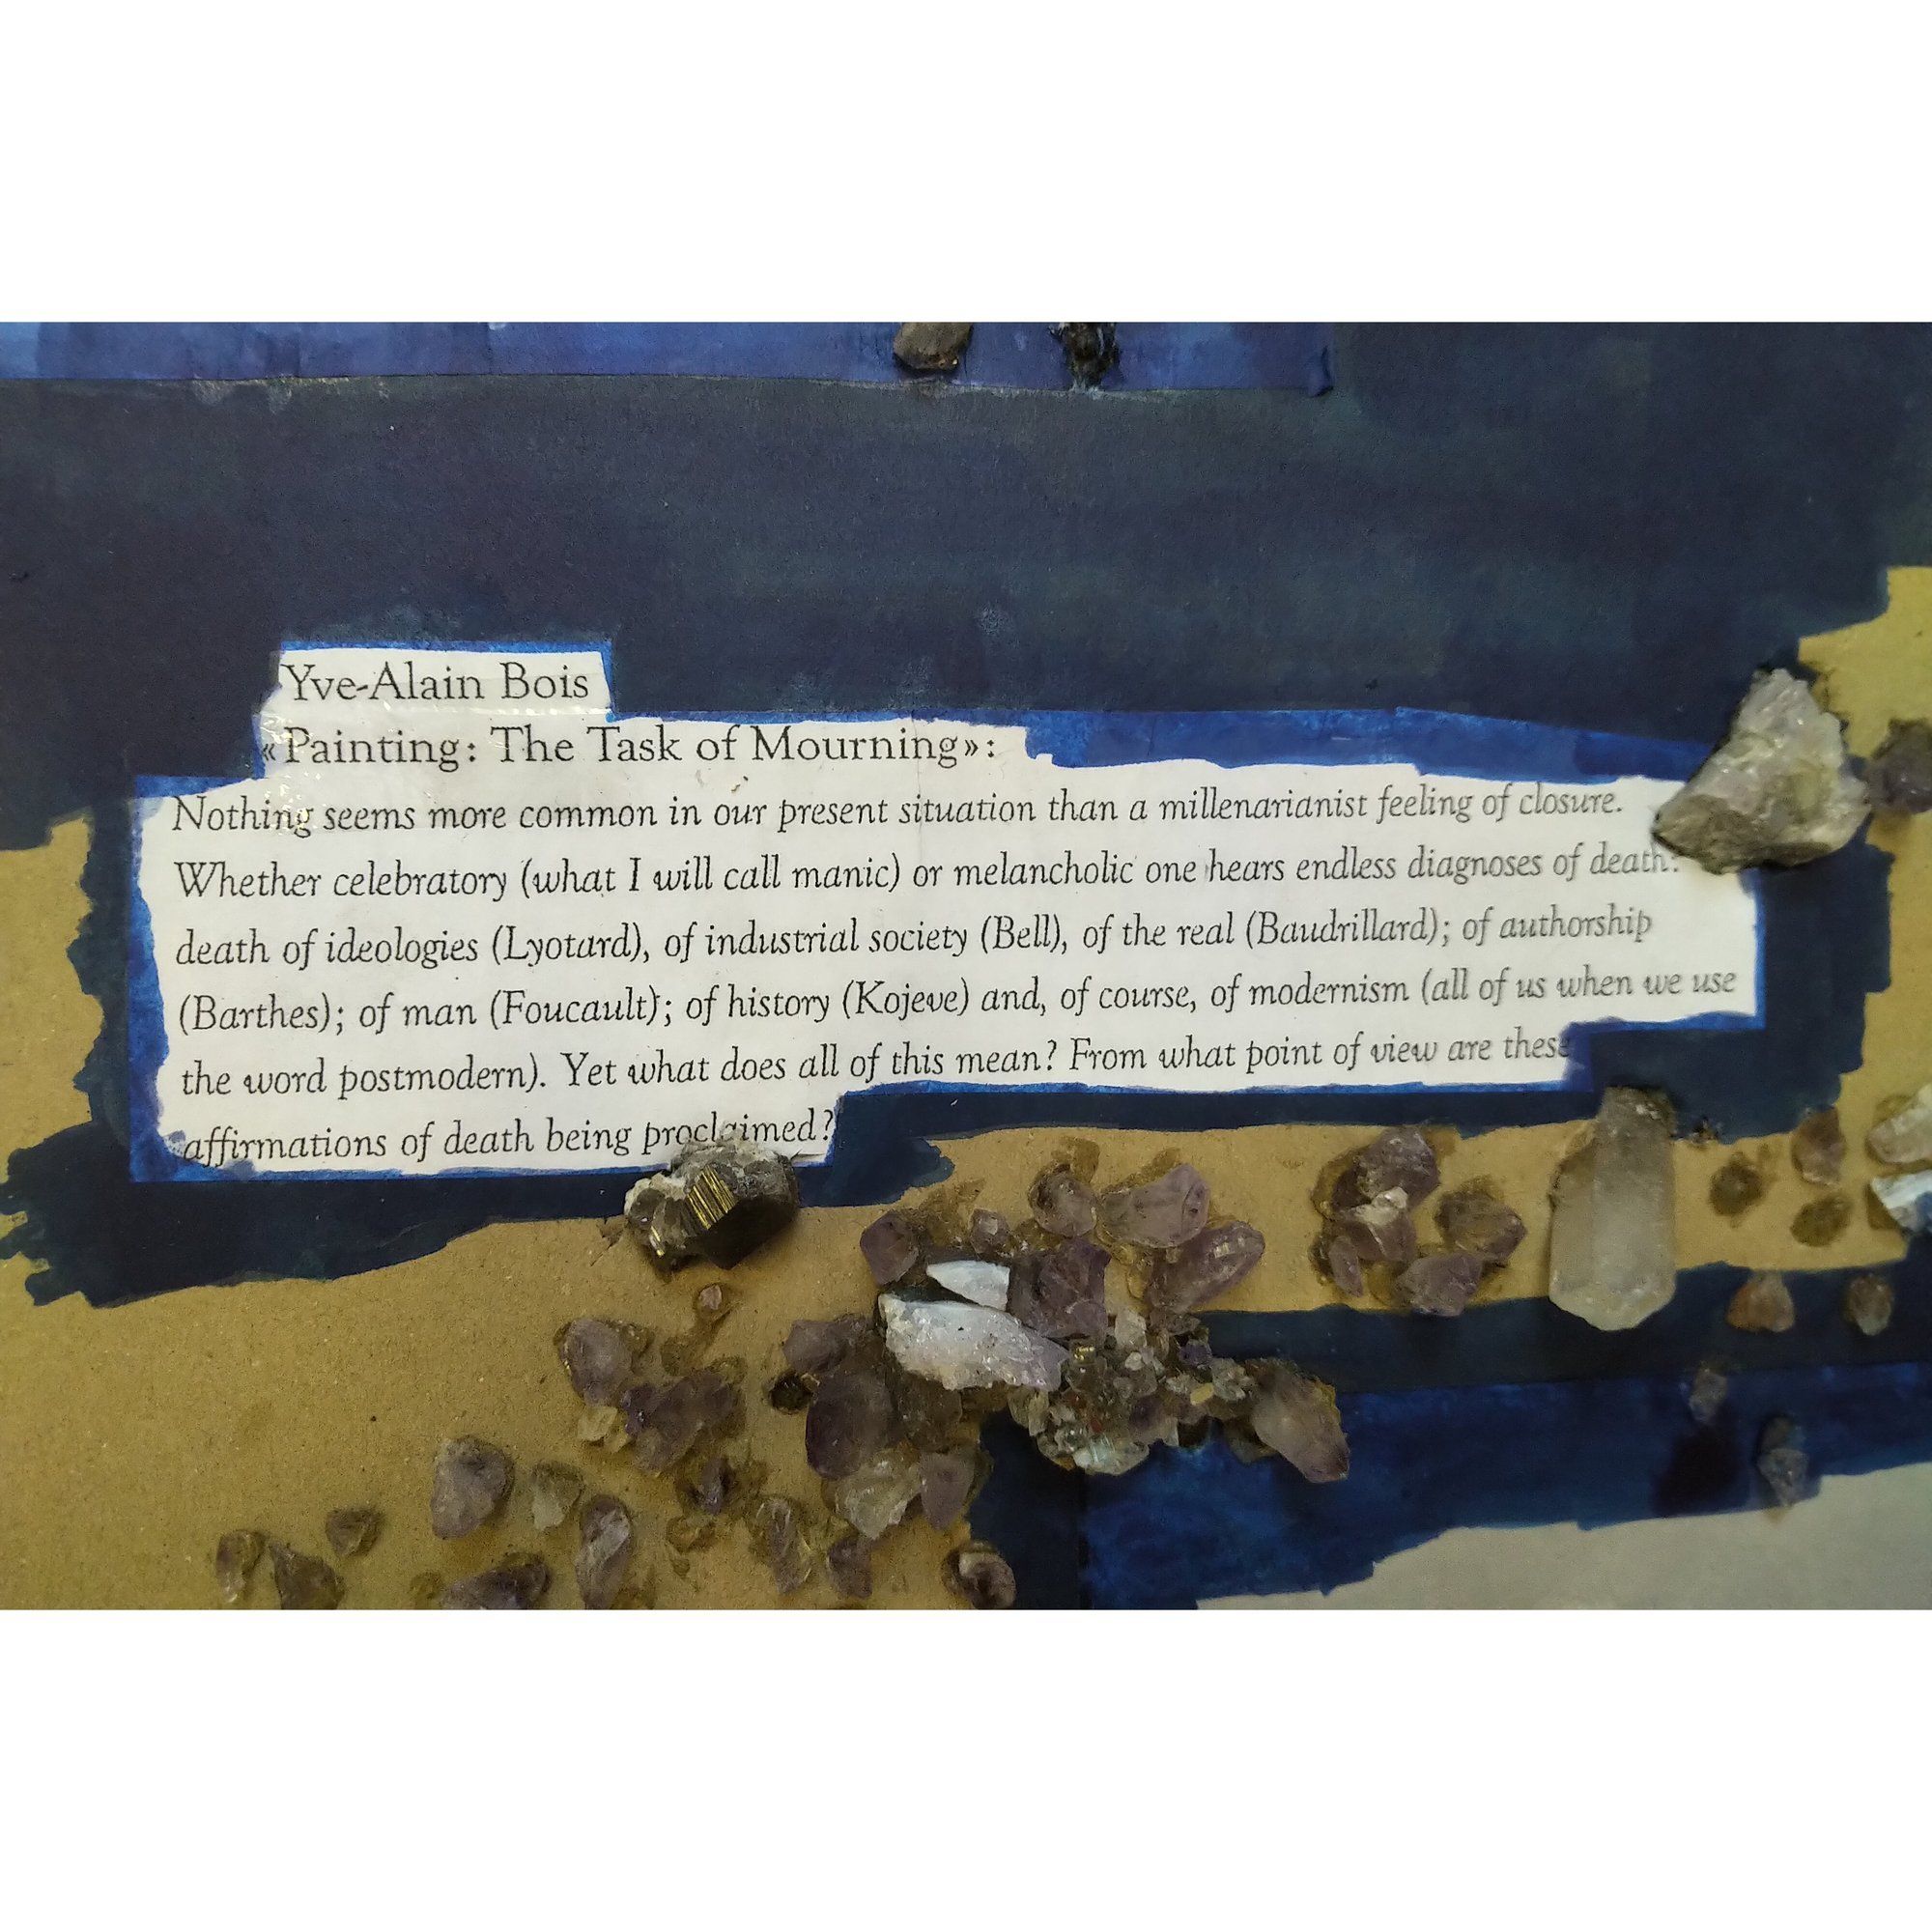 Yve-Alain Bois
«Painting: The Task of Mourning»:
Nothing seems more common in our present situation than a millenarianist feeling of closure.
Whether celebratory (what I will call manic) or melancholic one hears endless diagnoses of death:
death of ideologies (Lyotard), of industrial society (Bell), of the real (Baudrillard); of authorship
(Barthes); of man (Foucault); of history (Kojeve) and, of course, of modernism (all of us when we use
the word postmodern). Yet what does all of this mean? From what point of view are these
affirmations of death being proclaimed?